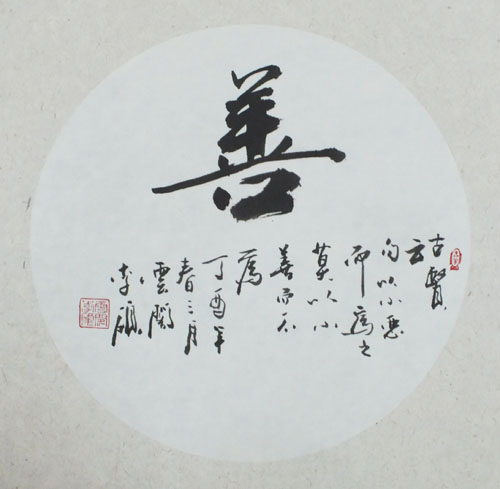 善
古賢
云
勿以小惡
而為之
莫以小
善而不
為
丁酉年
春三月
雲
李